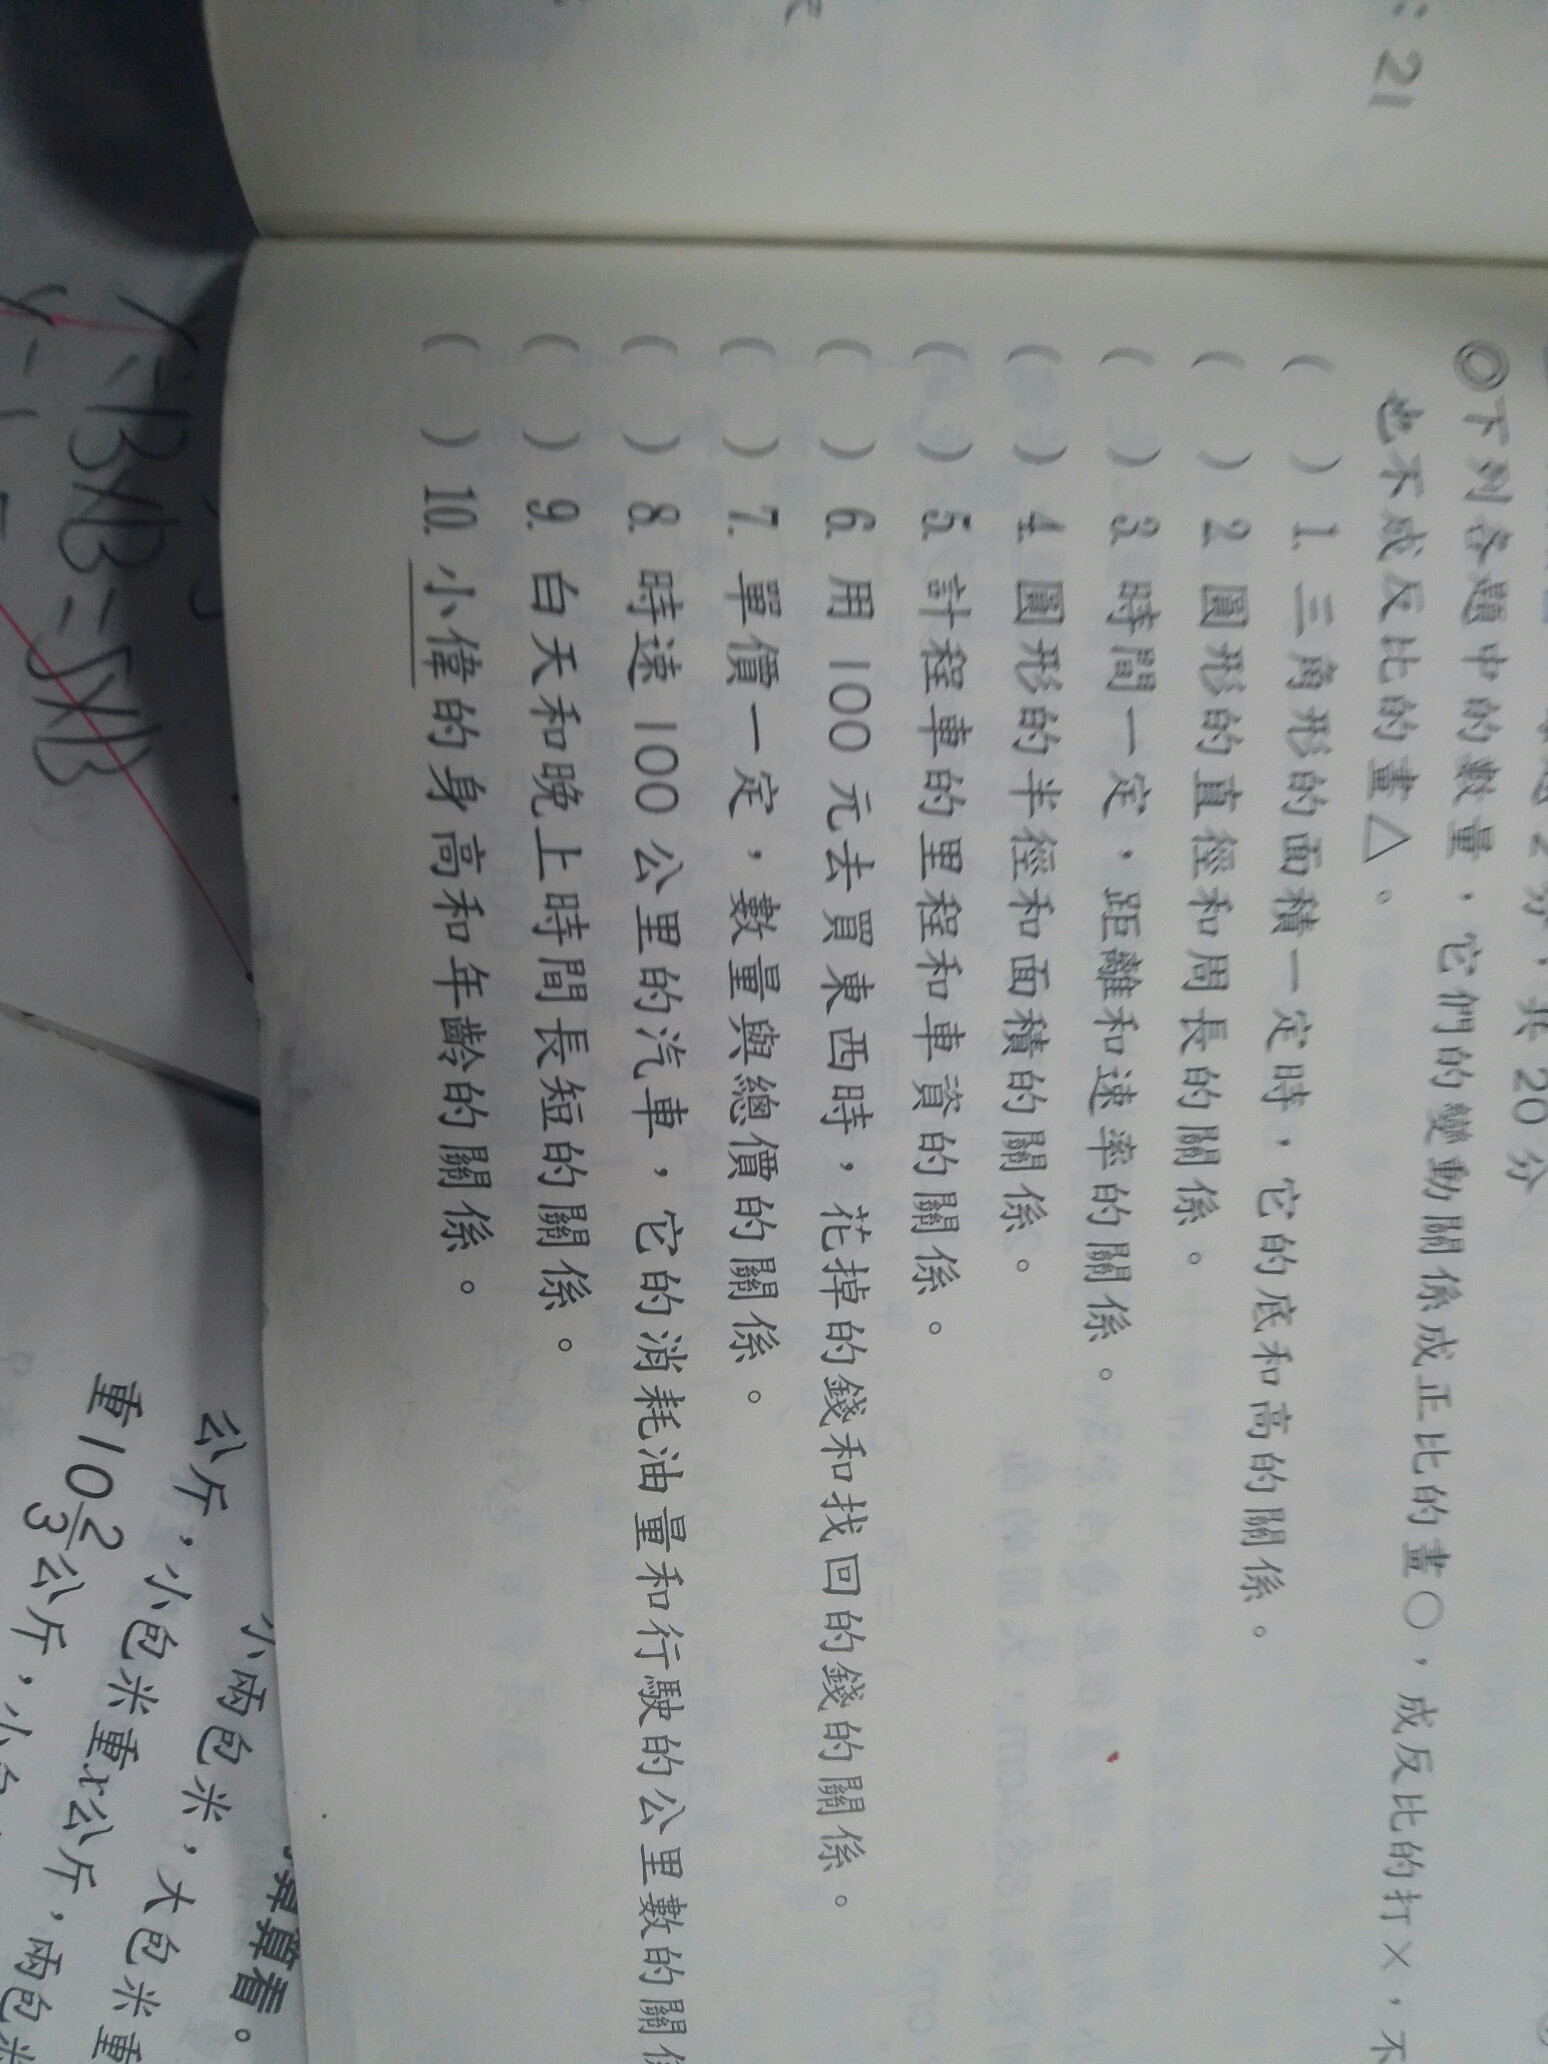 : 21
2 分，共 20 分
◎下列各題中的數量，它們的變動關係成正比的畫○，成反比的打×，不
也不成反比的畫△。
( ) 1. 三角形的面積一定時，它的底和高的關係。
( ) 2. 圓形的直徑和周長的關係。
( ) 3. 時間一定，距離和速率的關係。
( ) 4. 圓形的半徑和面積的關係。
( ) 5. 計程車的里程和車資的關係。
( ) 6. 用 100 元去買東西時，花掉的錢和找回的錢的關係。
( ) 7. 單價一定，數量與總價的關係。
( ) 8. 時速 100 公里的汽車，它的消耗油量和行駛的公里數的關係
( ) 9. 白天和晚上時間長短的關係。
( ) 10. 小偉的身高和年齡的關係。
算算看。
小兩包米，大包米重
公斤，小包米重x公斤，兩包米
重10 2/3 公斤，小